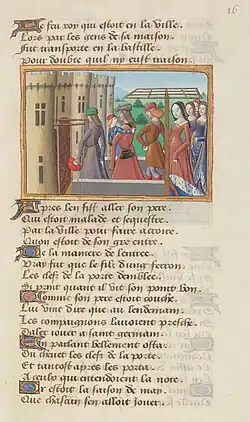 16
Le feu roy qui estoit en la ville
Lors par les gens de sa maison
Fut transporte en la bastille
Pour doubte quil ny eust traison
Apres len fist aller son pere
Qui estoit malade et sequestre
Par la ville pour faire acroire
Quon estoit de son gre entre
De la maniere de lentree
Vray fut que le filz dung ferron
Les clefz de la porte demblee
Si print quant il vit son point bon
Comme son pere estoit couche
Lui vint dire que au lendemain
Les compaignons lavoient presche
Daler iouer a saint germain
En parlant bellement osta
Du chevet les clefz de la porte
Et tantost apres les porta
A ceulx qui entendoient la note
Or estoit la saison de may
Que chascun sen alloit jouer